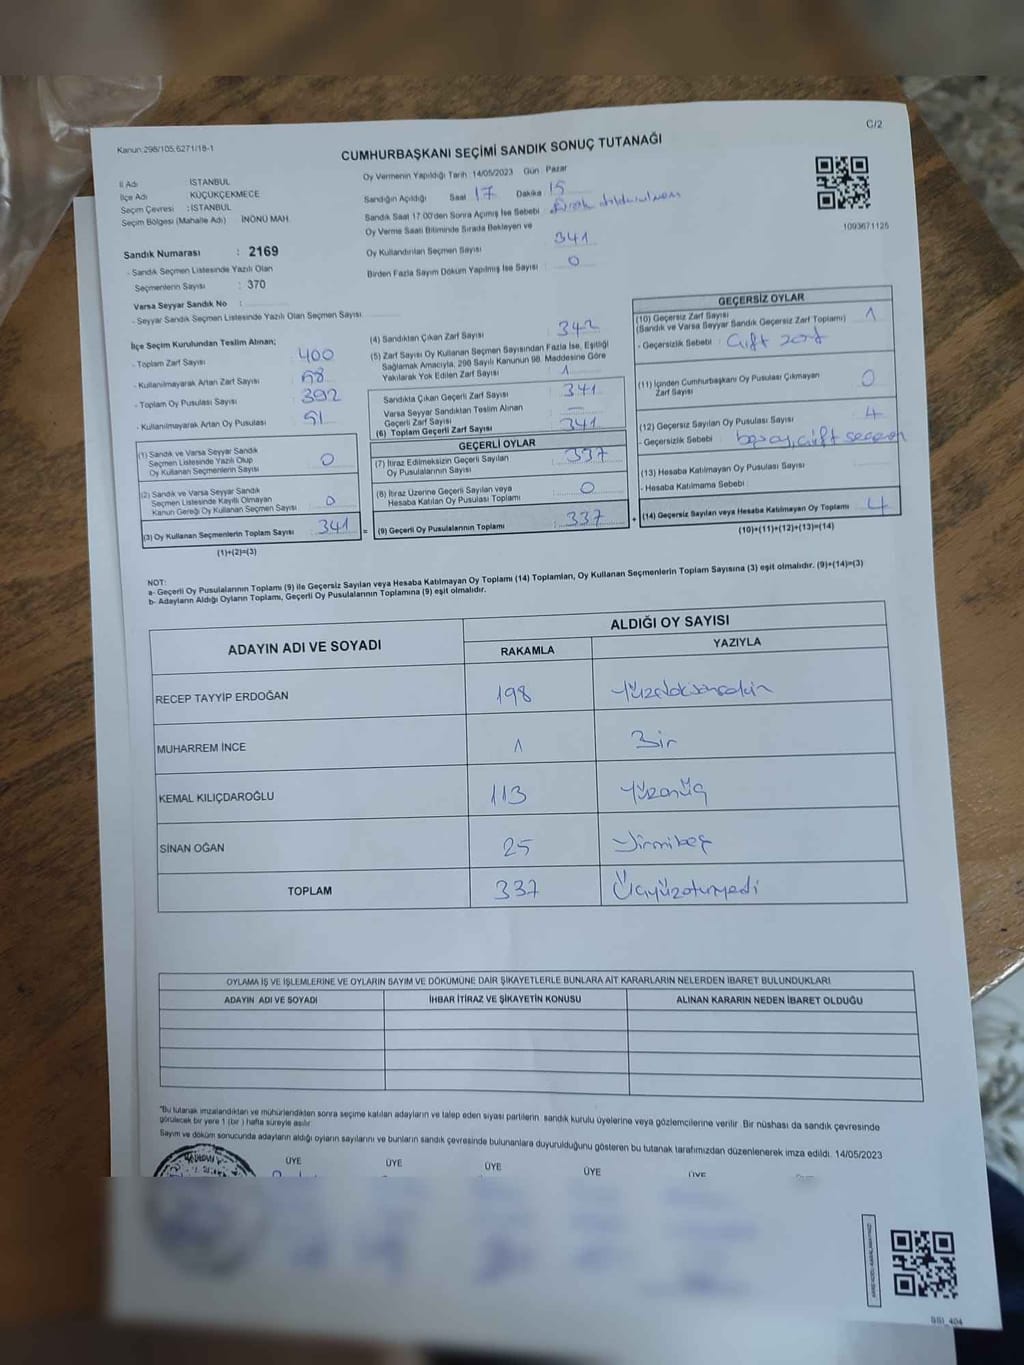 G/2
Kanun:298/105;6271/18-1
CUMHURBAŞKANI SEÇİMİ SANDIK SONUÇ TUTANAĞI
İl Adı : İSTANBUL
İlçe Adı : KÜÇÜKÇEKMECE
Seçim Çevresi : İSTANBUL
Seçim Bölgesi (Mahalle Adı) İNÖNÜ MAH.
Oy Vermenin Yapıldığı Tarih :14/05/2023 Gün : Pazar
Sandığın Açıldığı Saat 17 Dakika 15
Sandık Saat 17.00'den Sonra Açılmış İse Sebebi
Oy Verme Saati Bitiminde Sırada Bekleyen ve
Oy Kullandırılan Seçmen Sayısı 341
Birden Fazla Sayım Döküm Yapılmış İse Sayısı : 0
1093671125
Sandık Numarası : 2169
- Sandık Seçmen Listesinde Yazılı Olan
Seçmenlerin Sayısı : 370
Varsa Seyyar Sandık No :
- Seyyar Sandık Seçmen Listesinde Yazılı Olan Seçmen Sayısı
İlçe Seçim Kurulundan Teslim Alınan;
- Toplam Zarf Sayısı 400
- Kullanılmayarak Artan Zarf Sayısı 58
- Toplam Oy Pusulası Sayısı 392
- Kullanılmayarak Artan Oy Pusulası 51
(1) Sandık ve Varsa Seyyar Sandık
Seçmen Listesinde Yazılı Olup
Oy Kullanan Seçmenlerin Sayısı 0
(2) Sandık ve Varsa Seyyar Sandık
Seçmen Listesinde Kayıtlı Olmayan
Kanun Gereği Oy Kullanan Seçmen Sayısı 0
(3) Oy Kullanan Seçmenlerin Toplam Sayısı 341 =
(1)+(2)=(3)
(4) Sandıktan Çıkan Zarf Sayısı 342
(5) Zarf Sayısı Oy Kullanan Seçmen Sayısından Fazla İse, Eşitliği
Sağlamak Amacıyla, 298 Sayılı Kanunun 98. Maddesine Göre
Yakılarak Yok Edilen Zarf Sayısı 1
Sandıkta Çıkan Geçerli Zarf Sayısı 341
Varsa Seyyar Sandıktan Teslim Alınan
Geçerli Zarf Sayısı —
(6) Toplam Geçerli Zarf Sayısı 341
GEÇERLİ OYLAR
(7) İtiraz Edilmeksizin Geçerli Sayılan
Oy Pusulalarının Sayısı 337
(8) İtiraz Üzerine Geçerli Sayılan veya
Hesaba Katılan Oy Pusulası Toplamı 0
(9) Geçerli Oy Pusulalarının Toplamı : 337 +
GEÇERSİZ OYLAR
(10) Geçersiz Zarf Sayısı 1
(Sandık ve Varsa Seyyar Sandık Geçersiz Zarf Toplamı)
- Geçersizlik Sebebi : Çift zarf
(11) İçinden Cumhurbaşkanı Oy Pusulası Çıkmayan
Zarf Sayısı 0
(12) Geçersiz Sayılan Oy Pusulası Sayısı 4
- Geçersizlik Sebebi : boş oy, çift seçenek
(13) Hesaba Katılmayan Oy Pusulası Sayısı
- Hesaba Katılmama Sebebi :
(14) Geçersiz Sayılan veya Hesaba Katılmayan Oy Toplamı 4
(10)+(11)+(12)+(13)=(14)
NOT:
a- Geçerli Oy Pusulalarının Toplamı (9) ile Geçersiz Sayılan veya Hesaba Katılmayan Oy Toplamı (14) Toplamları, Oy Kullanan Seçmenlerin Toplam Sayısına (3) eşit olmalıdır. (9)+(14)=(3)
b- Adayların Aldığı Oyların Toplamı, Geçerli Oy Pusulalarının Toplamına (9) eşit olmalıdır.
ADAYIN ADI VE SOYADI ALDIĞI OY SAYISI
RAKAMLA YAZIYLA
RECEP TAYYİP ERDOĞAN 198 Yüzdoksansekiz
MUHARREM İNCE 1 Bir
KEMAL KILIÇDAROĞLU 113 Yüzonüç
SİNAN OĞAN 25 Yirmibeş
TOPLAM 337 Üçyüzotuzyedi
OYLAMA İŞ VE İŞLEMLERİNE VE OYLARIN SAYIM VE DÖKÜMÜNE DAİR ŞİKAYETLERLE BUNLARA AİT KARARLARIN NELERDEN İBARET BULUNDUKLARI
ADAYIN ADI VE SOYADI İHBAR İTİRAZ VE ŞİKAYETİN KONUSU ALINAN KARARIN NEDEN İBARET OLDUĞU
*Bu tutanak imzalandıktan ve mühürlendikten sonra seçime katılan adayların ve talep eden siyasi partilerin sandık kurulu üyelerine veya gözlemcilerine verilir. Bir nüshası da sandık çevresinde
görülecek bir yere 1 (bir ) hafta süreyle asılır.
Sayım ve döküm sonucunda adayların aldığı oyların sayılarını ve bunların sandık çevresinde bulunanlara duyurulduğunu gösteren bu tutanak tarafımızdan düzenlenerek imza edildi. 14/05/2023
ÜYE ÜYE ÜYE ÜYE ÜYE